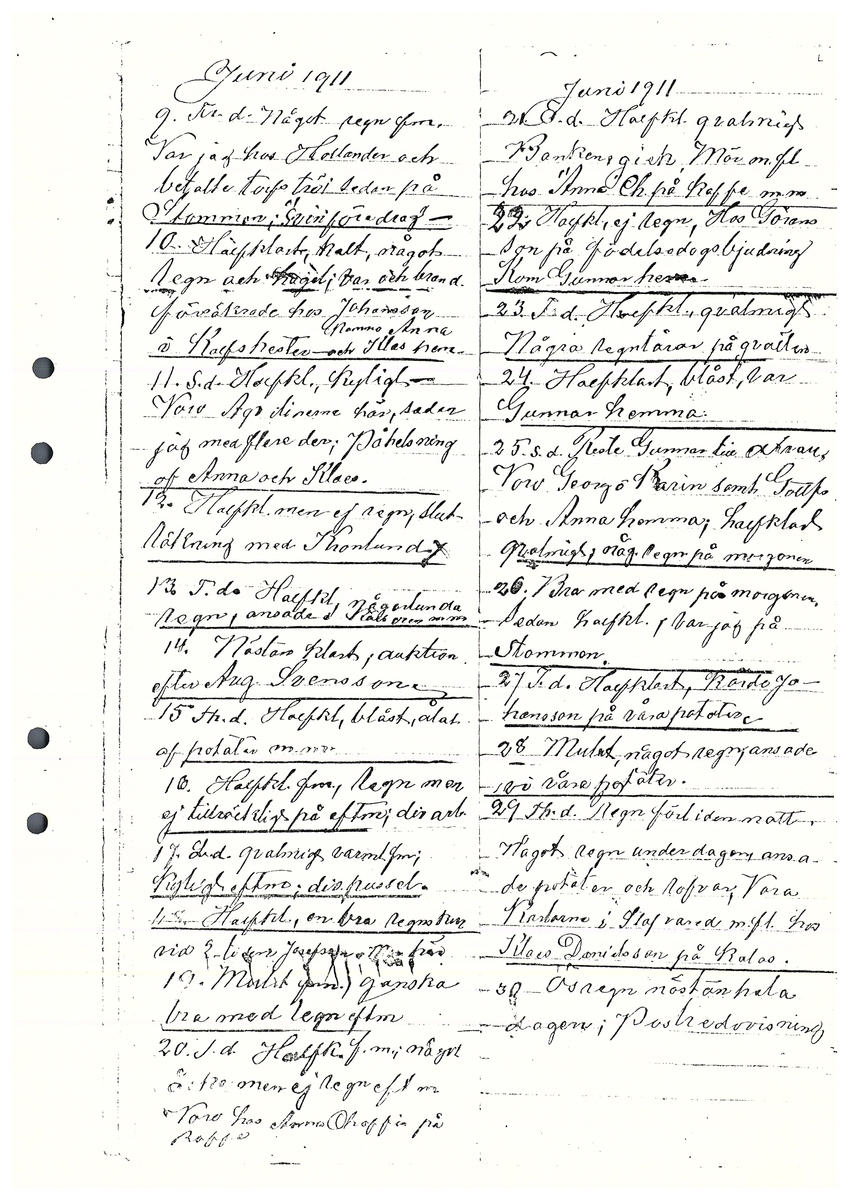 Juni 1911
9. Fr. d. Något regn fm.
Var jag hos Hollander och
betalte torfströ sedan på
Stommen; Svinföredrag
10. Halfklart, kalt, något
regn och hagel; var och brand
försäkrade hos Johansson
i Kalfshester och Klas hem
Kommo Anna
11. S.d. Halfkl., kyligt
Voro Agr dinerne här, sedan
jag med flere der; Påhelsning
af Anna och Klas.
12. Halfkl. men ej regn, slut
räkning med Kronlund
13 T. d. Halfkl någorlunda
regn, ansade
14. Nästan klart, auktion
efter Aug. Svensson
15 Th. d. Halfkl, blåst,
af potäter m.m.
16. Halfkl. fm, regn men
ej tillräckligt på eftm; div arb
17. L.d. qvalmigt varmt fm;
kyligt eftm; div. pussel.
18. Halfkl., en bra regnskur
vid 2 tiden Josefson
19. Mulet fm. ganska
bra med regn eftm
20. T. d. Halfk. f.m; något
åska men ej regn eftm
Voro hos Anna Choffia på
Kaffe
Juni 1911
21. O.d. Halfkl qvalmigt
Bankens gick Mör m.fl
hos Anna Ch. på kaffe m.m
22. Halfkl, ej regn, Hos Görans
son på födelsedagsbjudning
Kom Gunnar hem
23. F. d. Halfkl., qvalmigt
Några regntårar på qvällen
24. Halfklart, blåst, var
Gunnar hemma.
25. S. d. Reste Gunnar till
Voro Georg o Karin samt
och Anna hemma; halfklart
qvalmigt; någ. regn på morgonen
26. Bra med regn på morgonen,
sedan halfkl., var jag på
Stommen.
27 T. d. Halfklart, körde Jo-
hansson på våra potäter
28 Mulet, något regn; ansade
vi våra potäter.
29 Th. d. Regn förliden natt.
Något regn under dagen, ansa-
de potäter och rofvor, Vara
Karlarne i Slafvared m.fl. hos
Klaes Danielsson på Kalas.
30 Ösregn nästan hela
dagen; Postredovisning